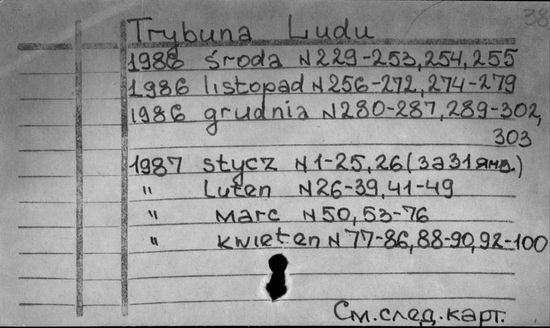 38
Trybuna Ludu
1986 środa N229-253, 254, 255
1986 listopad N256-272, 274-279
1986 grudnia N280-287, 289-302,
303
1987 stycz N1-25, 26 (за 31 янв.)
" Luten N26-39, 41-49
" Marc N50, 53-76
" kwieten N77-86, 88-90, 92-100
См. след. карт.